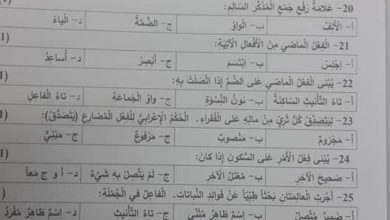 20- عَلامةُ رفْعِ جَمْعِ المُذكّرِ السّالِمِ:
أ- الألِفُ ب- الواوُ ج- الضّمّةُ د- الياءُ
21- الفِعْلُ الماضي مِنَ الأفْعالِ الآتِيَةِ:
أ- اِجْلِسْ ب- ابْتَسَمَ ج- أَبْصِرْ د- أُساعِدُ
22- يُبْنى الفِعْلُ الماضي عَلى الضّمِّ إذا اتّصَلَتْ بِهِ:
أ- تاءُ التّأنيثِ السّاكِنَةُ ب- نونُ النّسْوَةِ ج- واوُ الجَماعَةِ د- تاءُ الفاعِلِ
23- لِيَتَصَدّقْ كُلُّ ثَرِيٍّ مِنْ مالِهِ عَلى الفُقَراءِ. الحُكْمُ الإعْرابِيُّ لِلفِعْلِ المُضارِعِ (يَتَصَدّقْ):
أ- مَجْزومٌ ب- مَنْصوبٌ ج- مَرْفوعٌ د- مَبْنِيٌّ
24- يُبْنى فِعْلُ الأمْرِ عَلى السّكونِ إذا كانَ:
أ- صَحيحَ الآخِرِ ب- مُعْتَلَّ الآخِرِ ج- لَمْ يَتّصِلْ بِهِ شَيْءٌ د- أ و ج مَعاً
25- أجْرَتِ العالِمتانِ بَحْثاً طِبّيّاً عَنْ فَوائِدِ النّباتاتِ. الفاعِلُ في الجُمْلَةِ:
أ- ضَميرٌ مُتّصِلٌ ب- اِسْمٌ ظاهِرٌ مُثَنّى ج- تاءُ التّأنيثِ د- اِسْمٌ ظاهِرٌ مُفْرَدٌ